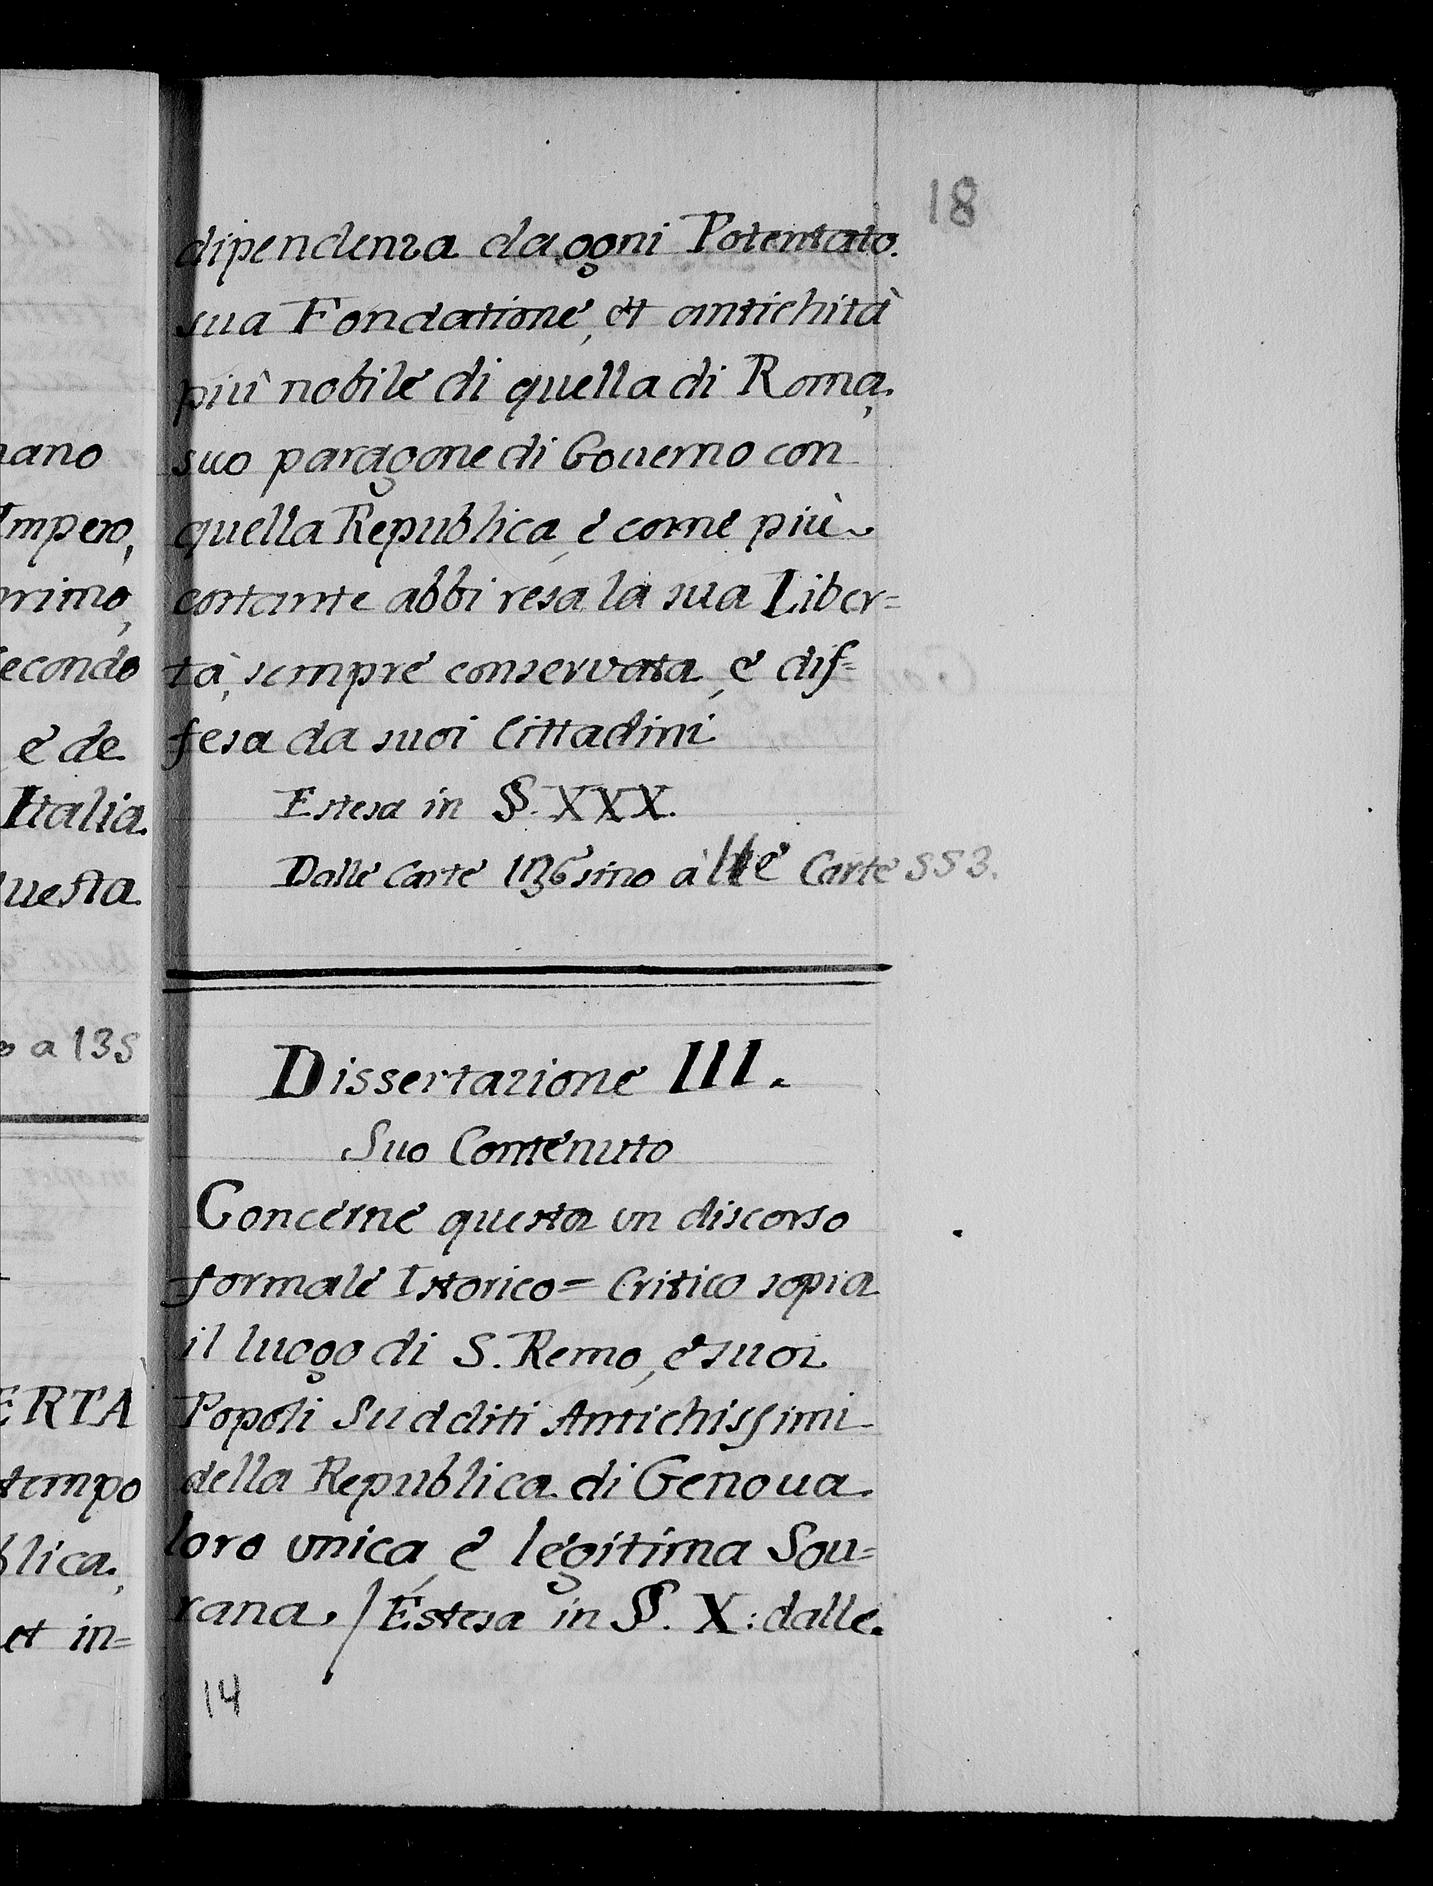 18
dipendenza da ogni Potentato.
sua Fondatione, et antichità
più nobile di quella di Roma,
suo paragone di Gouerno con
quella Republica, e come più
costante abbi resa la sua Liber=
tà, sempre conservata, e dif=
fesa da suoi Cittadini
Estesa in §§. XXX.
Dalle Carte 136 sino alle Carte 553.
Dissertazione III.
Suo Contenuto
Concerne questa un discorso
formale Istorico= Critico sopra
il luogo di S. Remo, e suoi
Popoli Sudditi Antichissimi
della Republica di Genoua
loro unica, e legitima Sou=
rana. / Estesa in §§. X: dalle
14
mano
Impero,
primo,
secondo
e de
Italia.
questa
o a 135
ERTA
tempo
blica,
et in=